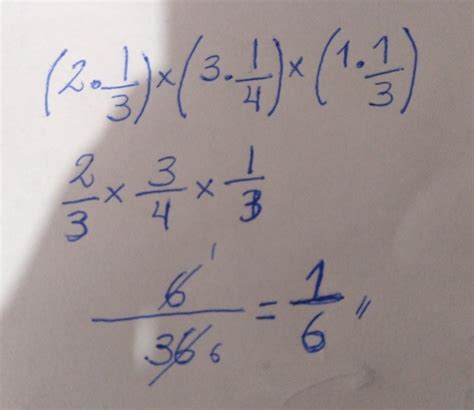 (2·1/3)×(3·1/4)×(1·1/3)
2/3 × 3/4 × 1/3
6 1 / 36 6 = 1/6 〃